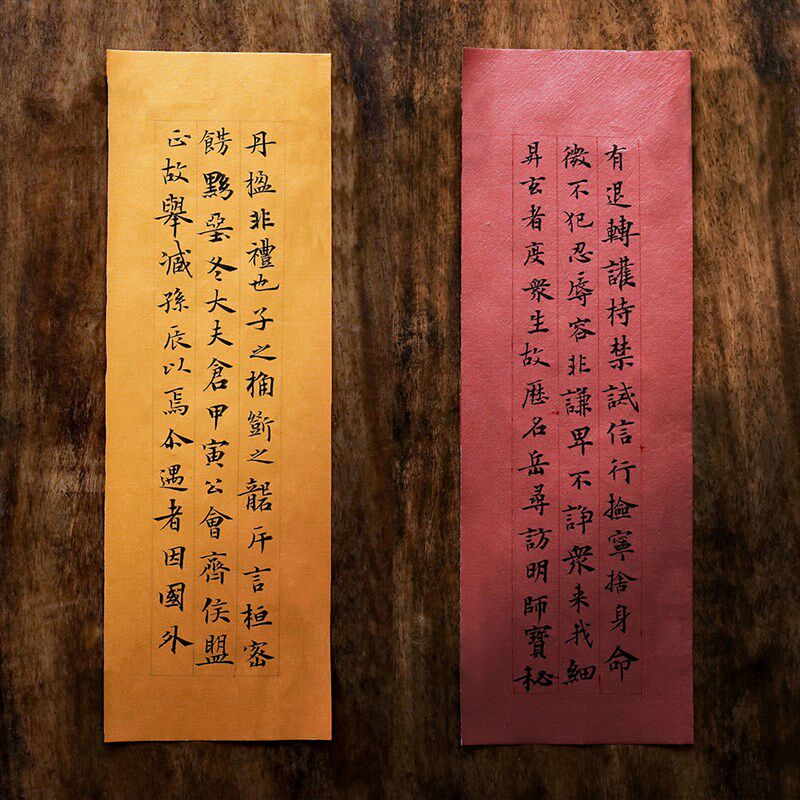 有退轉護持禁誡信行撿寧捨身命
微不犯忍辱容非謙卑不諍衆来我細
昇玄者度衆生故歷名岳尋訪明師寶秘
丹楹非禮也子之桷斵之礱斤言桓密
餝黝堊冬大夫倉甲寅公會齊侯盟
正故舉孫辰以焉尒遇者因國外